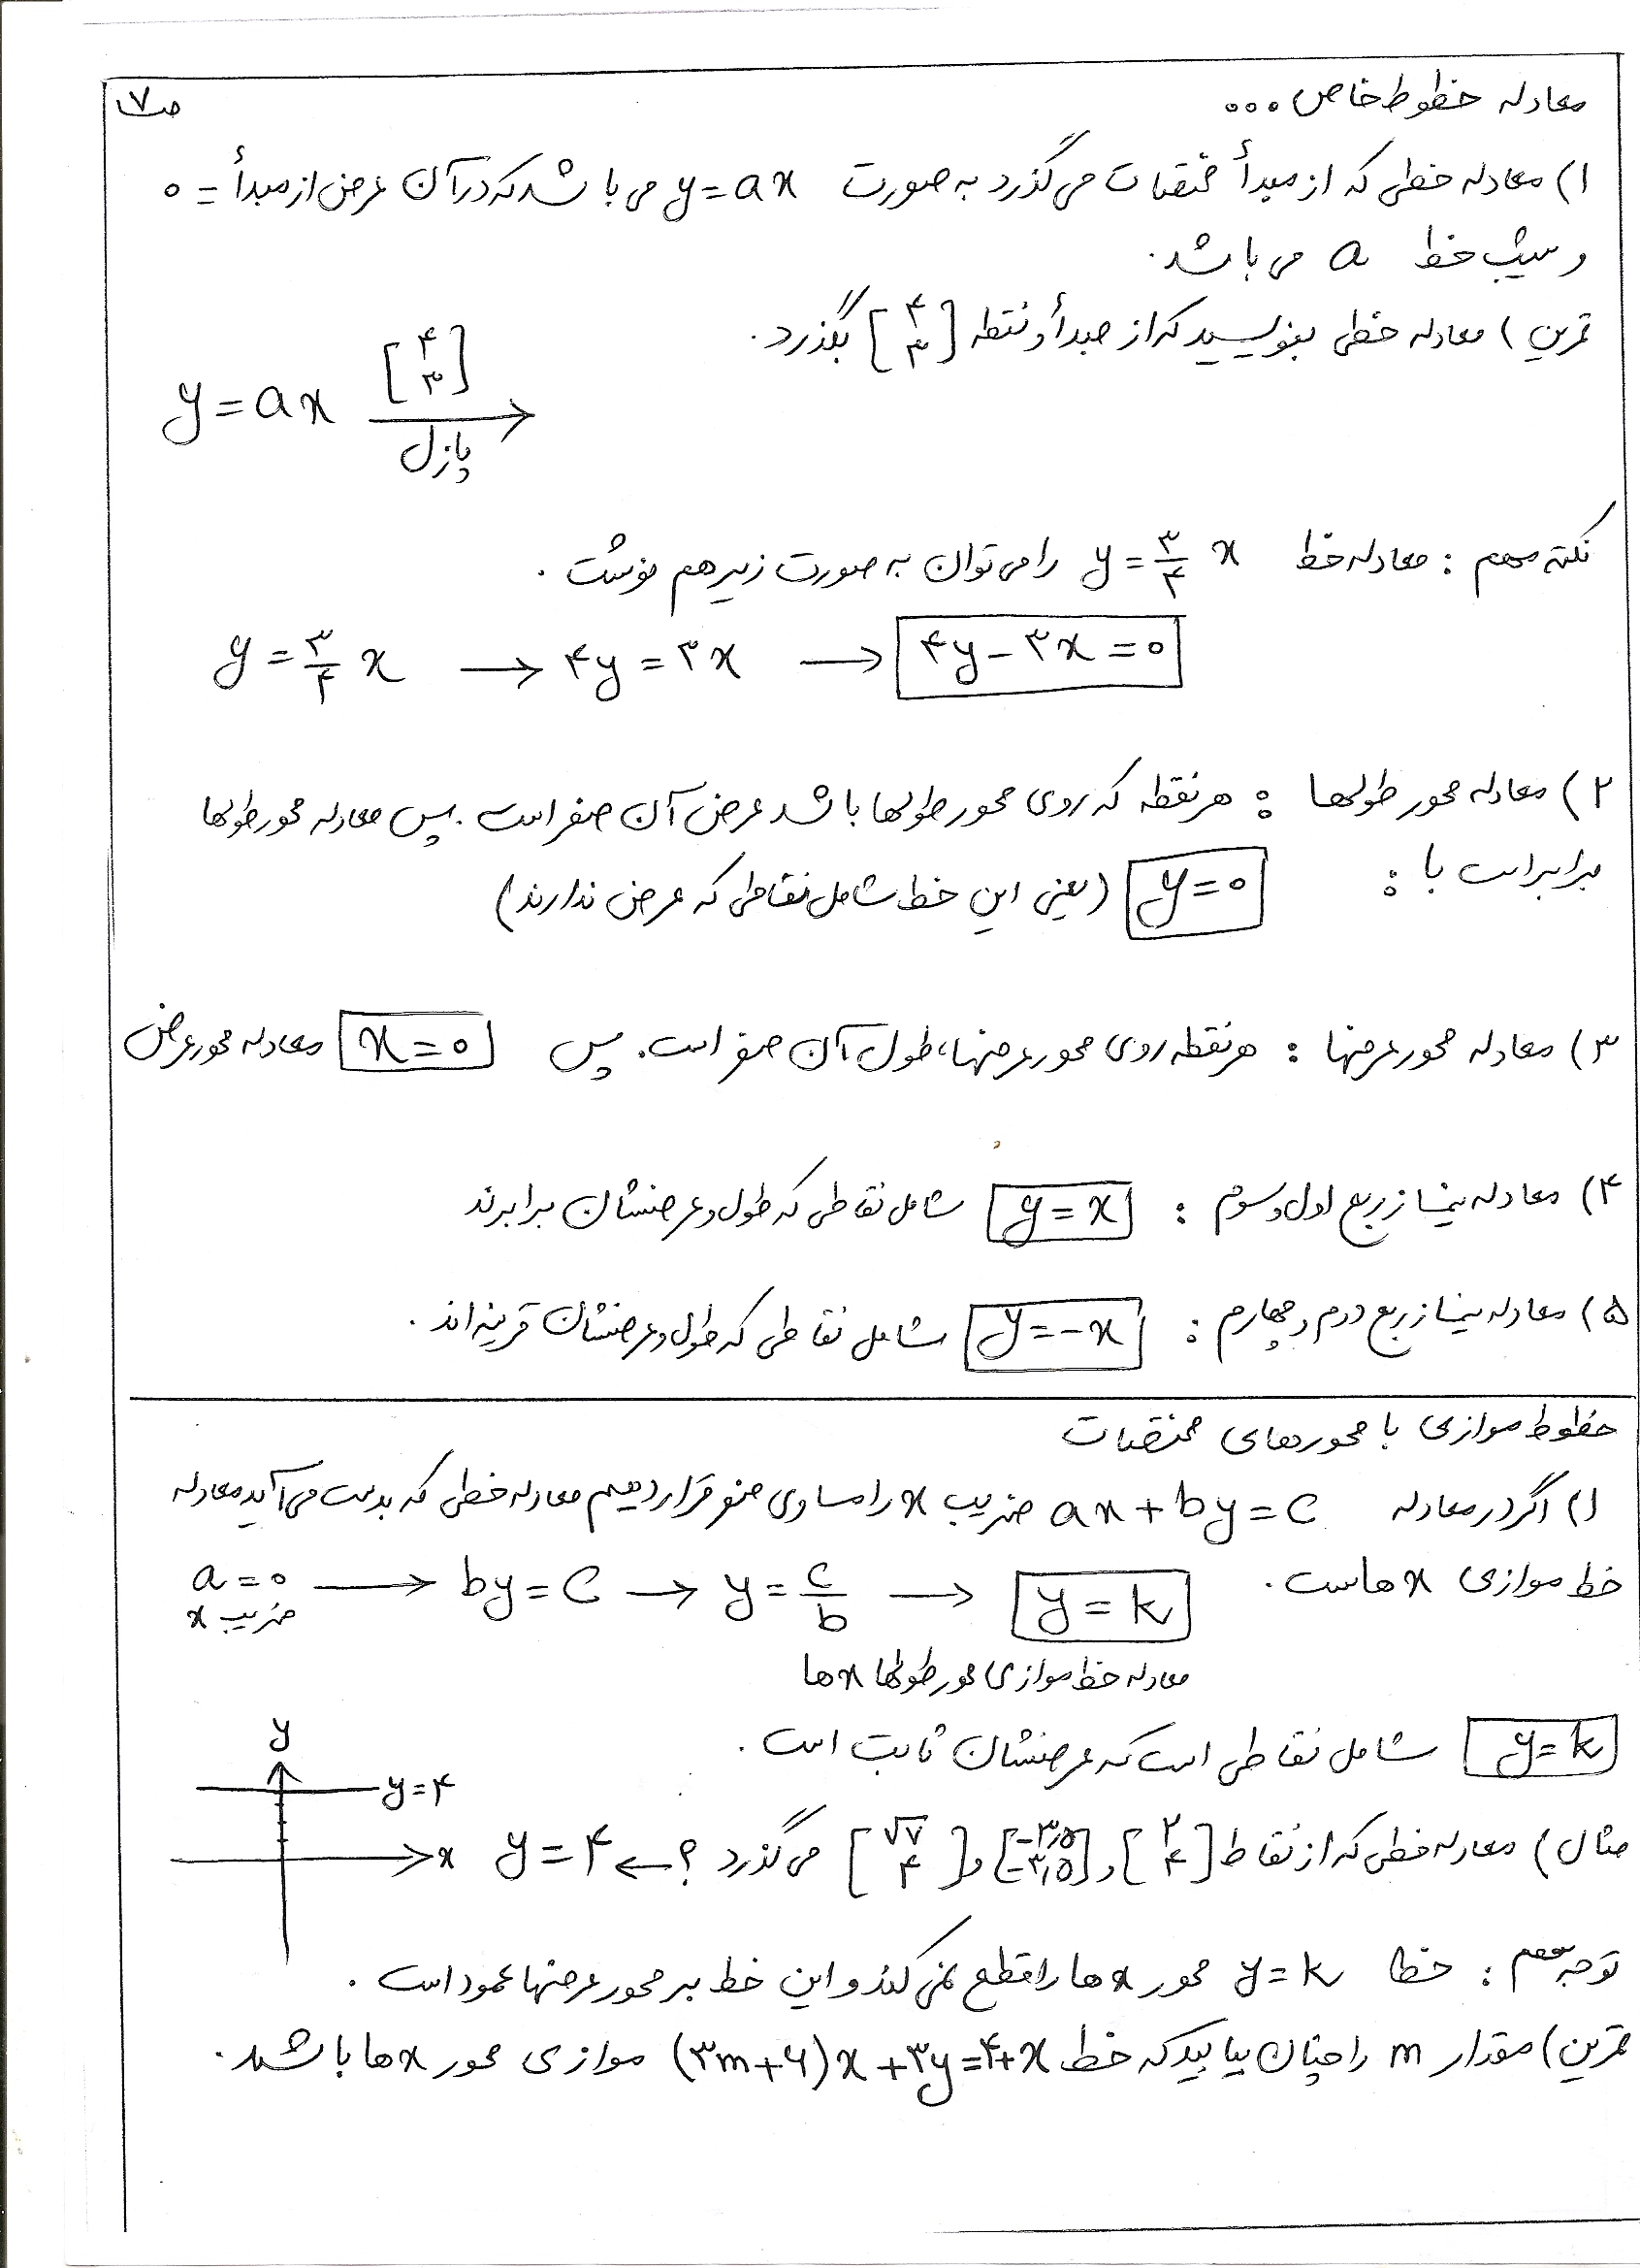 معادله خطوط خاص ... ص۷
۱) معادله خطی که از مبدأ مختصات می گذرد به صورت y=ax می باشد که در آن عرض از مبدأ = ۰
و شیب خط a می باشد.
تمرین) معادله خطی بنویسید که از مبدأ و نقطه [۴ ۳] بگذرد.
y=ax [۴ ۳] →
پازل
نکته مهم : معادله خط y=۳/۴ x را می توان به صورت زیر هم نوشت .
y=۳/۴ x → ۴y=۳x → ۴y-۳x=۰
۲) معادله محور طولها : هر نقطه که روی محور طولها باشد عرض آن صفر است . پس معادله محور طولها
برابر است با : y=۰ (یعنی این خط شامل نقاطی که عرض ندارند)
۳) معادله محور عرضها : هر نقطه روی محور عرضها، طول آن صفر است. پس x=۰ معادله محور عرض
۴) معادله نیمساز ربع اول و سوم : y=x شامل نقاطی که طول و عرضشان برابرند
۵) معادله نیمساز ربع دوم و چهارم : y=-x شامل نقاطی که طول و عرضشان قرینه اند .
خطوط موازی با محورهای مختصات
۱) اگر در معادله ax+by=c ضریب x را مساوی صفر قرار دهیم معادله خطی که بدست می آید معادله
خط موازی x هاست .
a=۰ → by=c → y=c/b → y=k
ضریب x
معادله خط موازی محور طولها x ها
y=k شامل نقاطی است که عرضشان ثابت است .
y
y=۴
x
مثال) معادله خطی که از نقاط [۲ ۴] و [-۳,۵ -۳,۵] و [√۷ ۴] می گذرد ؟ ← y=۴
توجه مهم : خط y=k محور x ها را قطع نمی کند و این خط بر محور عرضها عمود است .
تمرین) مقدار m را چنان بیابید که خط (۳m+۶)x+۳y=۴+x موازی محور x ها باشد .